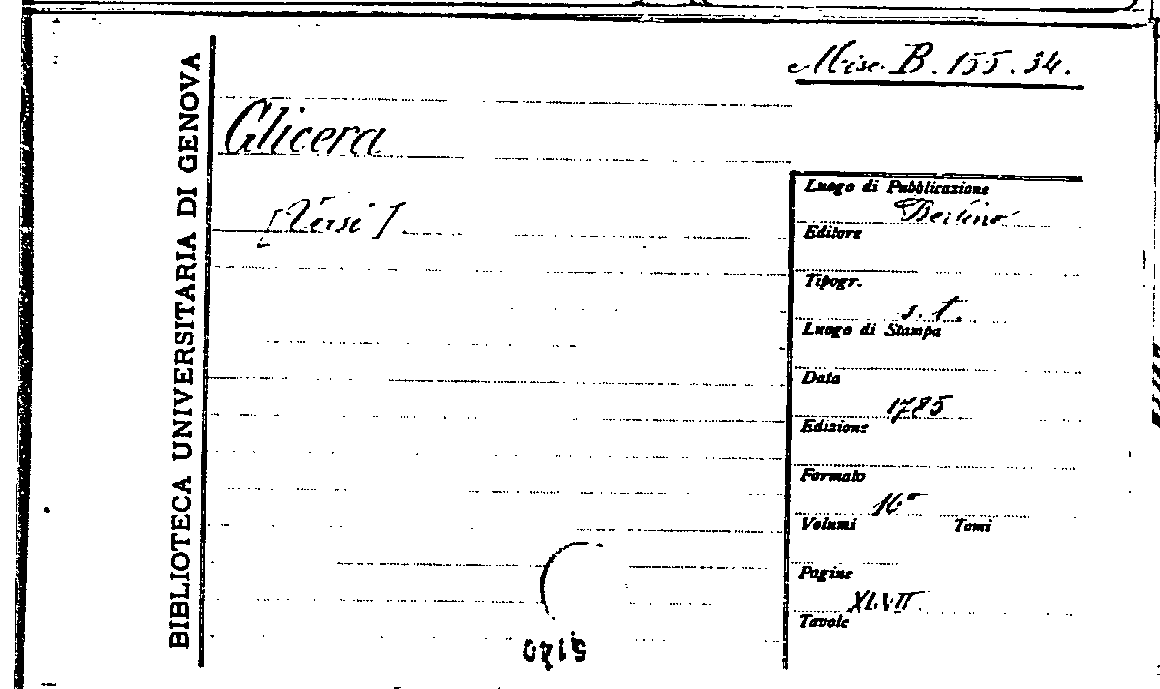 BIBLIOTECA UNIVERSITARIA DI GENOVA
Misc. B. 155. 34.
Glicera
[Versi]
Luogo di Pubblicazione
Berlino
Editore
Tipogr.
s. t.
Luogo di Stampa
Data
1785
Edizione
Formato
16°
Volumi Tomi
Pagine
XLVII
Tavole